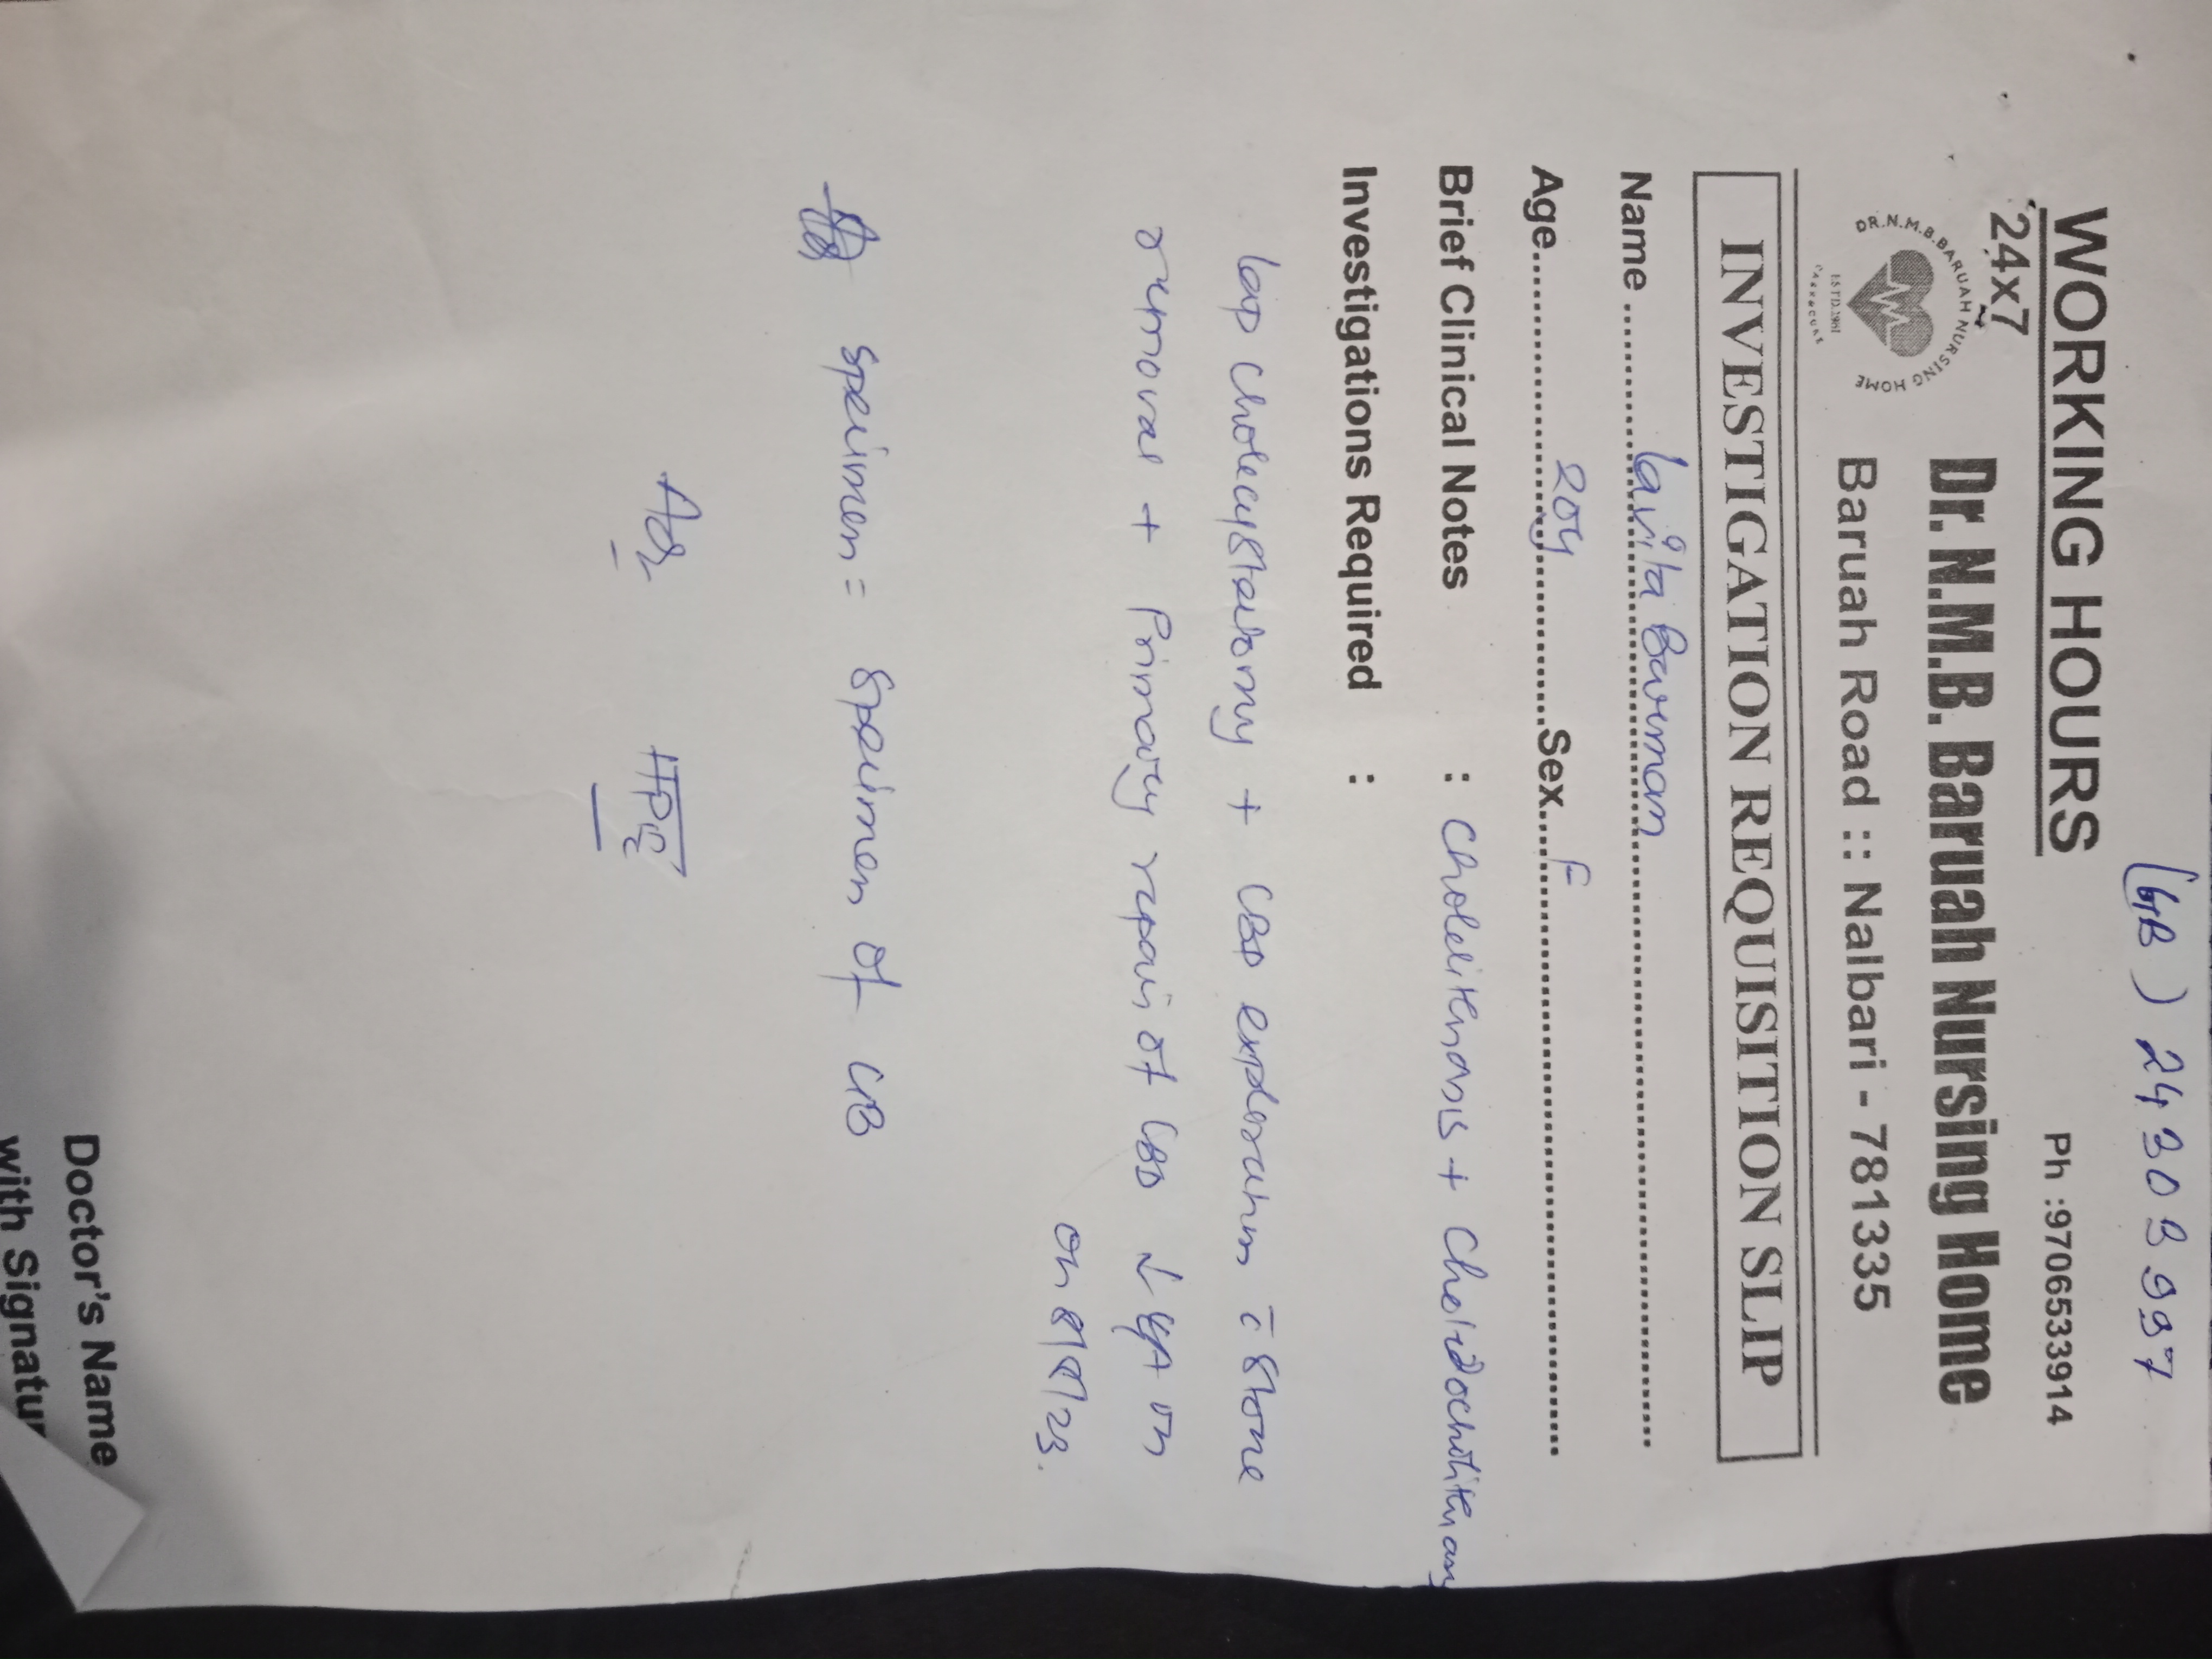 (GB) 24309997
WORKING HOURS
24x7
Ph :9706533914
DR.N.M.B.BARUAH NURSING HOME
ESTD.1981
Dr. N.M.B. Baruah Nursing Home
Baruah Road :: Nalbari - 781335
INVESTIGATION REQUISITION SLIP
Name lavita Barman
Age 20y Sex F
Brief Clinical Notes : Cholelithiasis + Choledocholithiasis
Investigations Required :
lap cholecystectomy + CBD exploration c̄ stone
removal + Primary repair of CBD ↓ GA on
on 8/8/23.
specimen = specimen of GB
Adv HPE
Doctor's Name
with Signatur